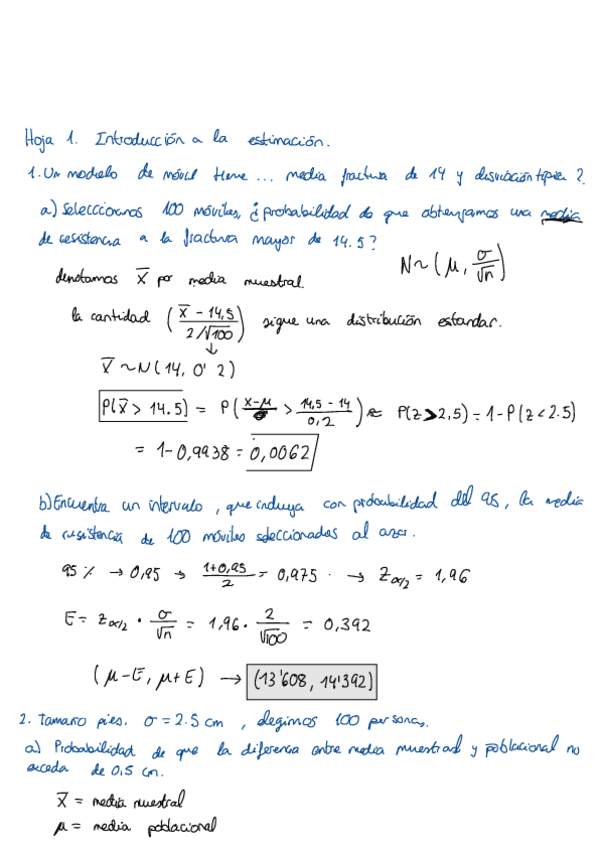 Hoja 1. Introducción a la estimación.
1. Un modelo de móvil tiene ... media fractura de 14 y desviación típica 2.
a) Seleccionamos 100 móviles, ¿probabilidad de que obtengamos una media
de resistencia a la fractura mayor de 14.5?
N~(μ, σ/√n)
denotamos X̄ por media muestral.
la cantidad ((X̄ - 14,5)/(2/√100)) sigue una distribución estandar.
↓
X̄ ~ N(14, 0'2)
P(X̄ > 14.5) = P( (X-μ)/σ > (14,5 - 14)/0,2 ) ≈ P(Z > 2,5) = 1 - P(Z < 2.5)
= 1 - 0,9938 = 0,0062
b) Encuentra un intervalo, que incluya con probabilidad del 95, la media
de resistencia de 100 móviles seleccionados al azar.
95 % → 0,95 → (1+0,95)/2 = 0,975 → Z α/2 = 1,96
E = Z α/2 · σ/√n = 1,96 · 2/√100 = 0,392
(μ-E, μ+E) → (13'608, 14'392)
2. Tamaño pies. σ = 2.5 cm, elegimos 100 personas.
a) Probabilidad de que la diferencia entre media muestral y poblacional no
exceda de 0,5 cm.
X̄ = media muestral
μ = media poblacional